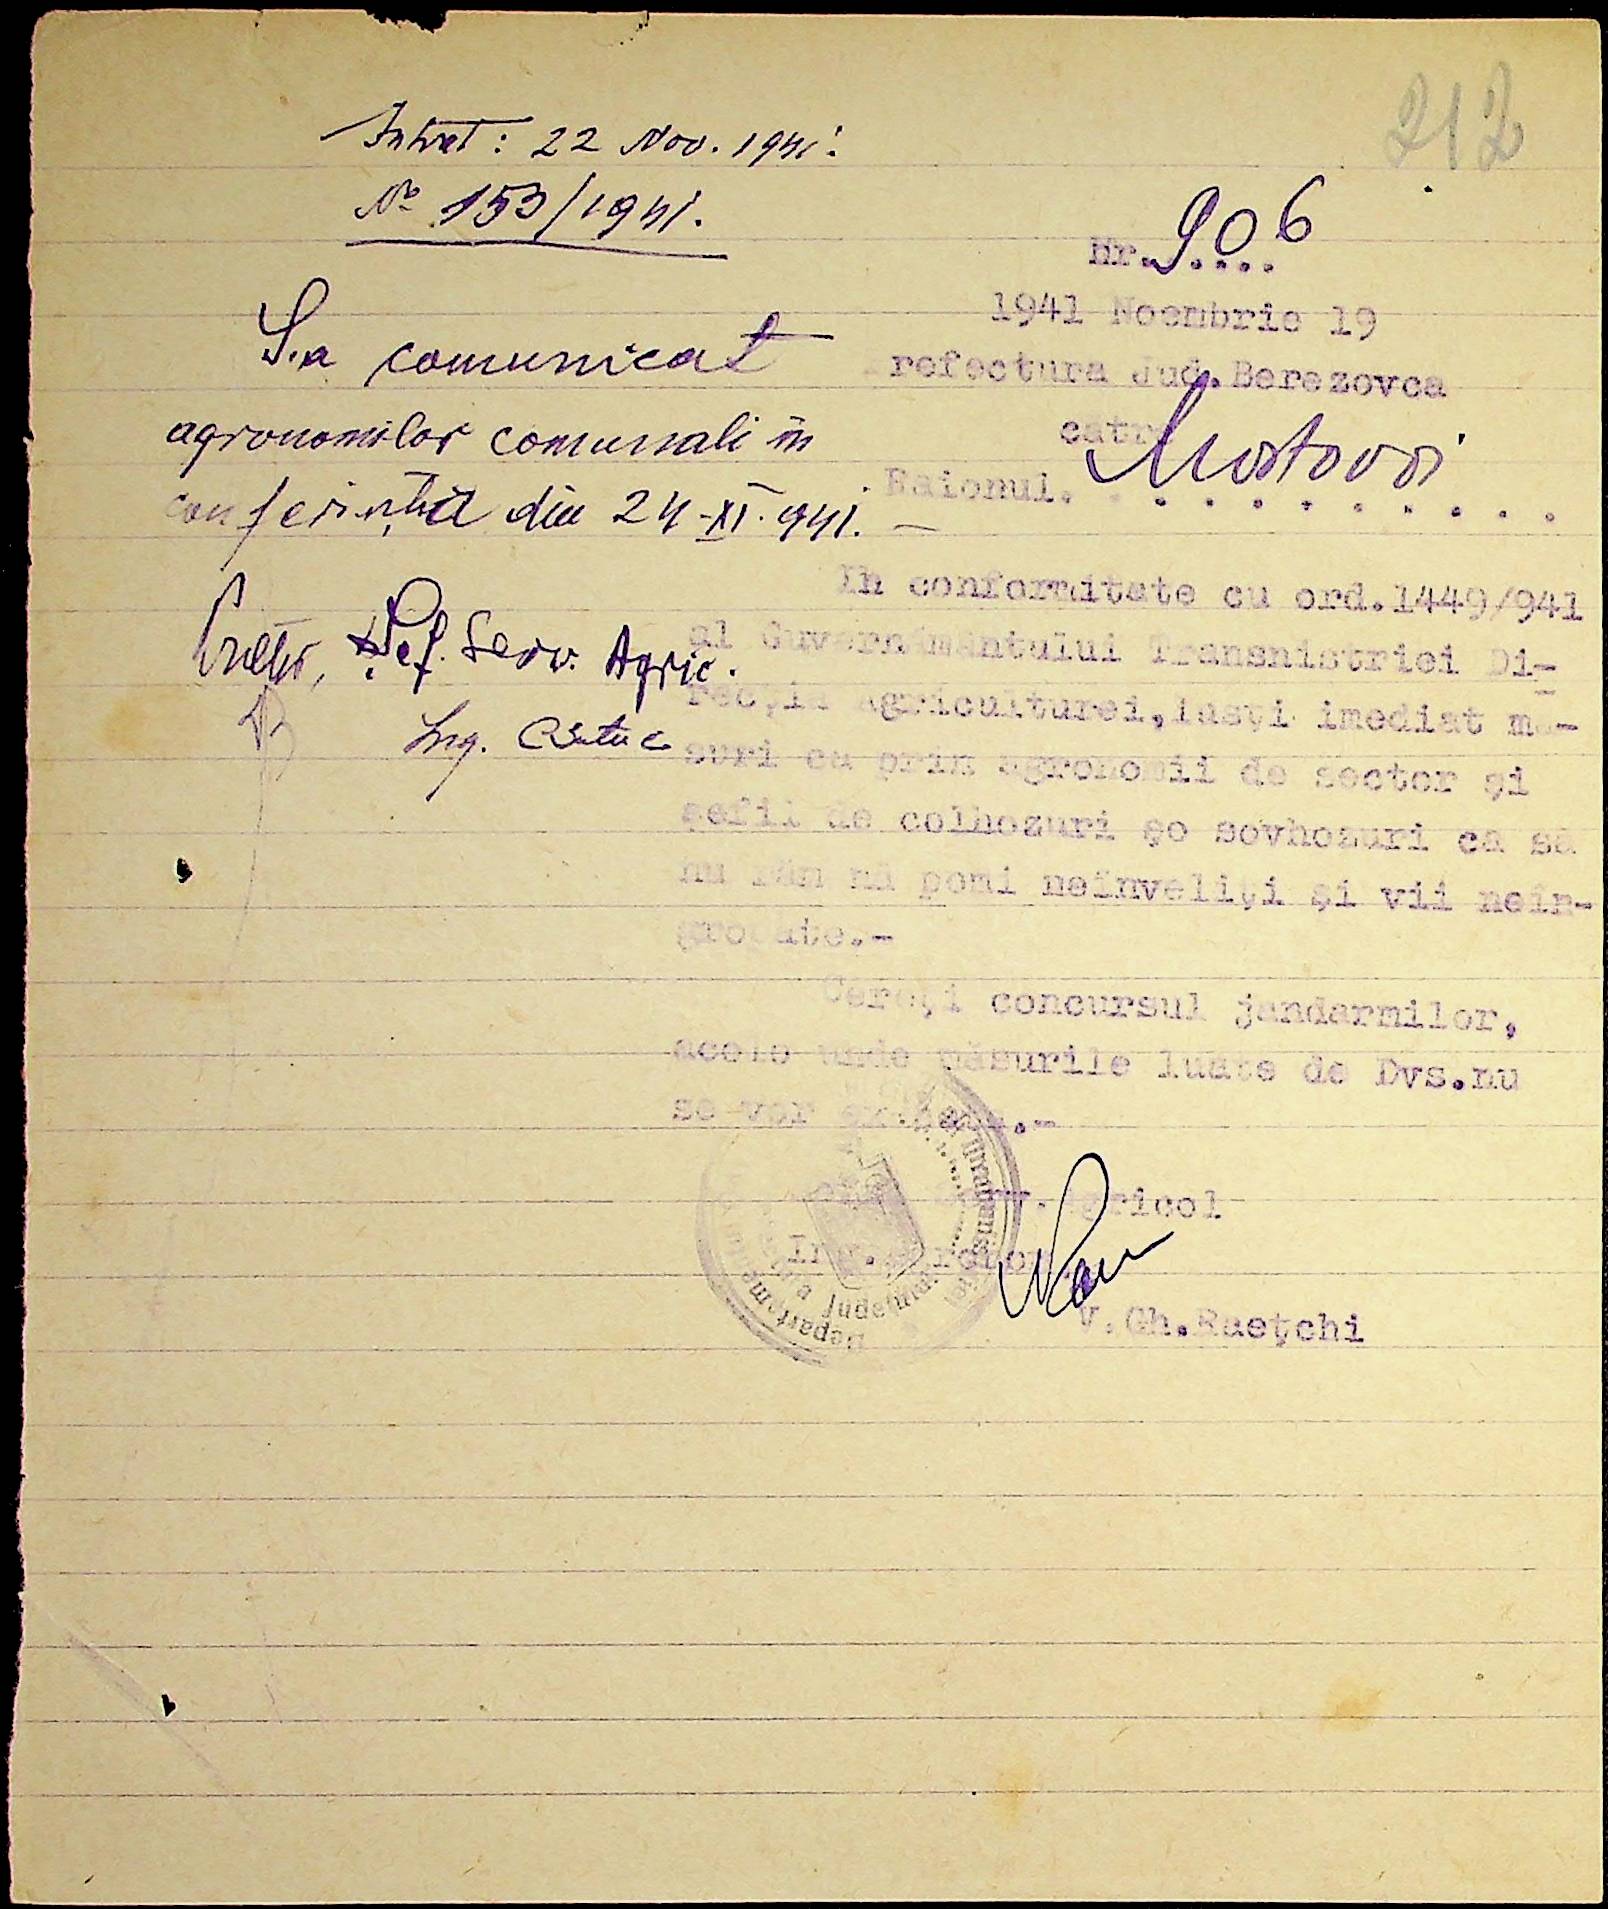 212
Intrat: 22 Nov. 1941.
№ 153/1941.
S.a comunicat
agronomilor comunali în
conferința din 24-XI-941.
Pretor, Șef. Serv. Agric.
Ing.
Nr. 906
1941 Noembrie 19
refectura Jud. Berezovca
către
Raionul. Mostovoi
In conformitate cu ord.1449/941
al Guvernământului Transnistriei Di-
recția Agriculturei, luați imediat mă-
suri ca prin agronomii de sector și
șefii de colhozuri șo sovhozuri ca să
nu rămînă pomi neînveliți și vii neîn-
gropate.-
Cereți concursul jandarmilor,
acolo unde măsurile luate de Dvs.nu
se vor executa.-
Serv. Agricol
Ing. Agronom
V. Gh. Raețchi